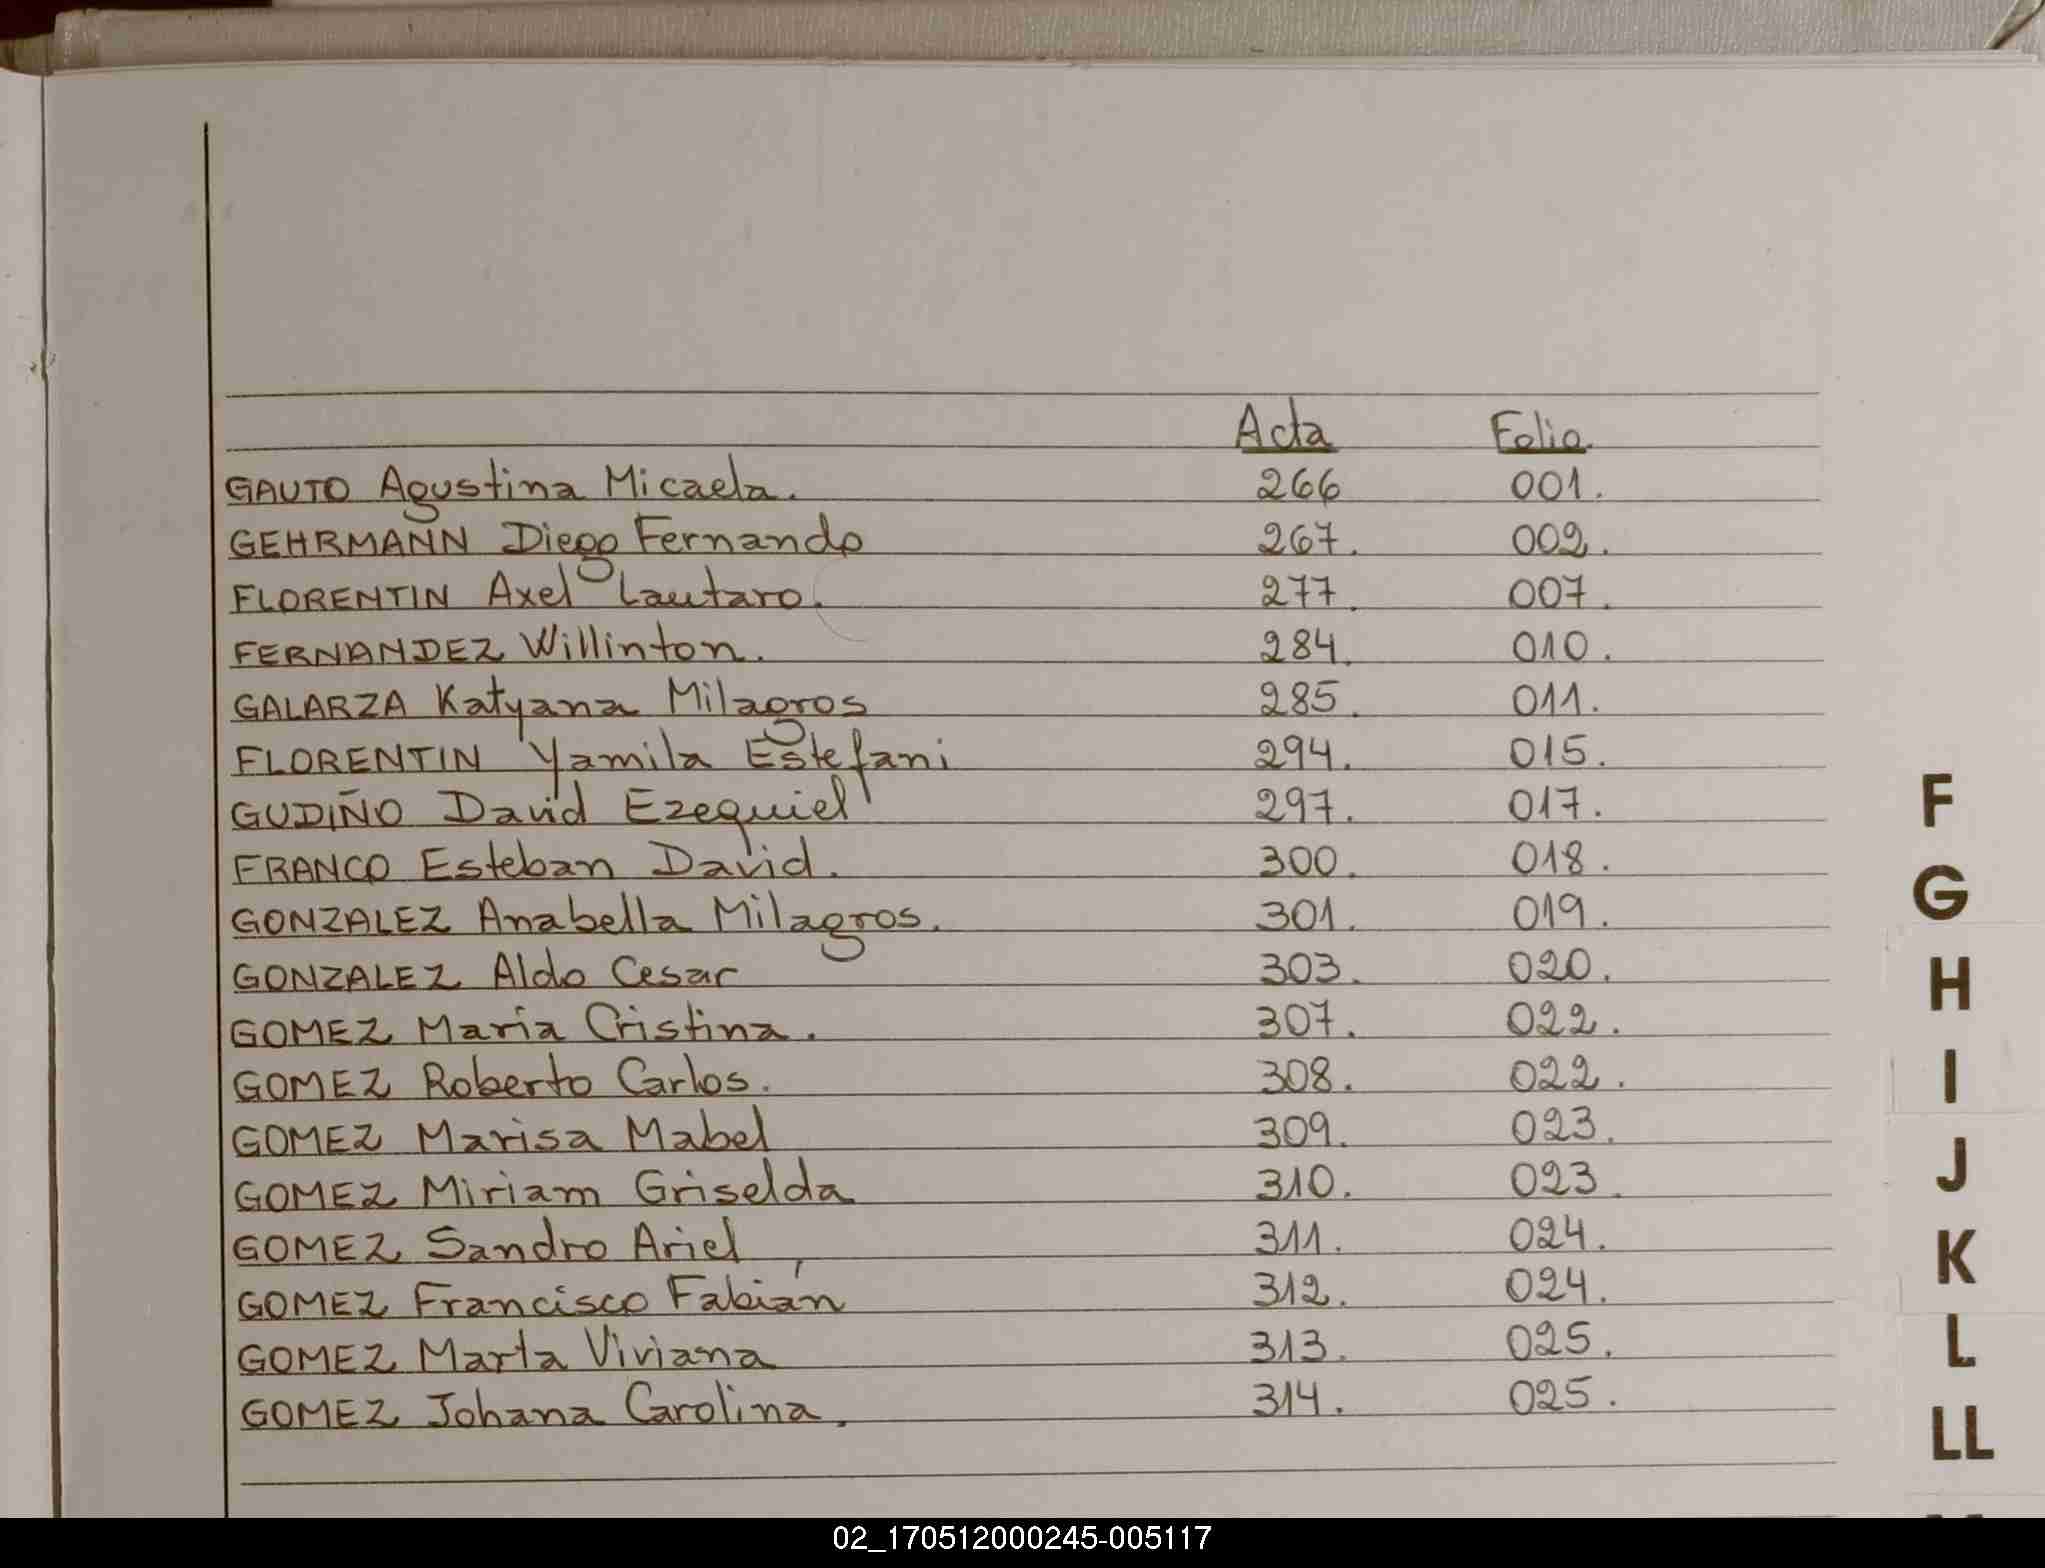 Acta Folio
GAUTO Agustina Micaela. 266 001.
GEHRMANN Diego Fernando 267. 002.
FLORENTIN Axel Lautaro. 277. 007.
FERNANDEZ Willinton. 284. 010.
GALARZA Katyana Milagros 285. 011.
FLORENTIN Yamila Estefani 294. 015.
GUDIÑO David Ezequiel 297. 017.
FRANCO Esteban David. 300. 018.
GONZALEZ Anabella Milagros. 301. 019.
GONZALEZ Aldo Cesar 303. 020.
GOMEZ María Cristina. 307. 022.
GOMEZ Roberto Carlos. 308. 022.
GOMEZ Marisa Mabel 309. 023.
GOMEZ Miriam Griselda 310. 023.
GOMEZ Sandro Ariel 311. 024.
GOMEZ Francisco Fabián 312. 024.
GOMEZ Marta Viviana 313. 025.
GOMEZ Johana Carolina. 314. 025.
F
G
H
I
J
K
L
LL
02_170512000245-005117